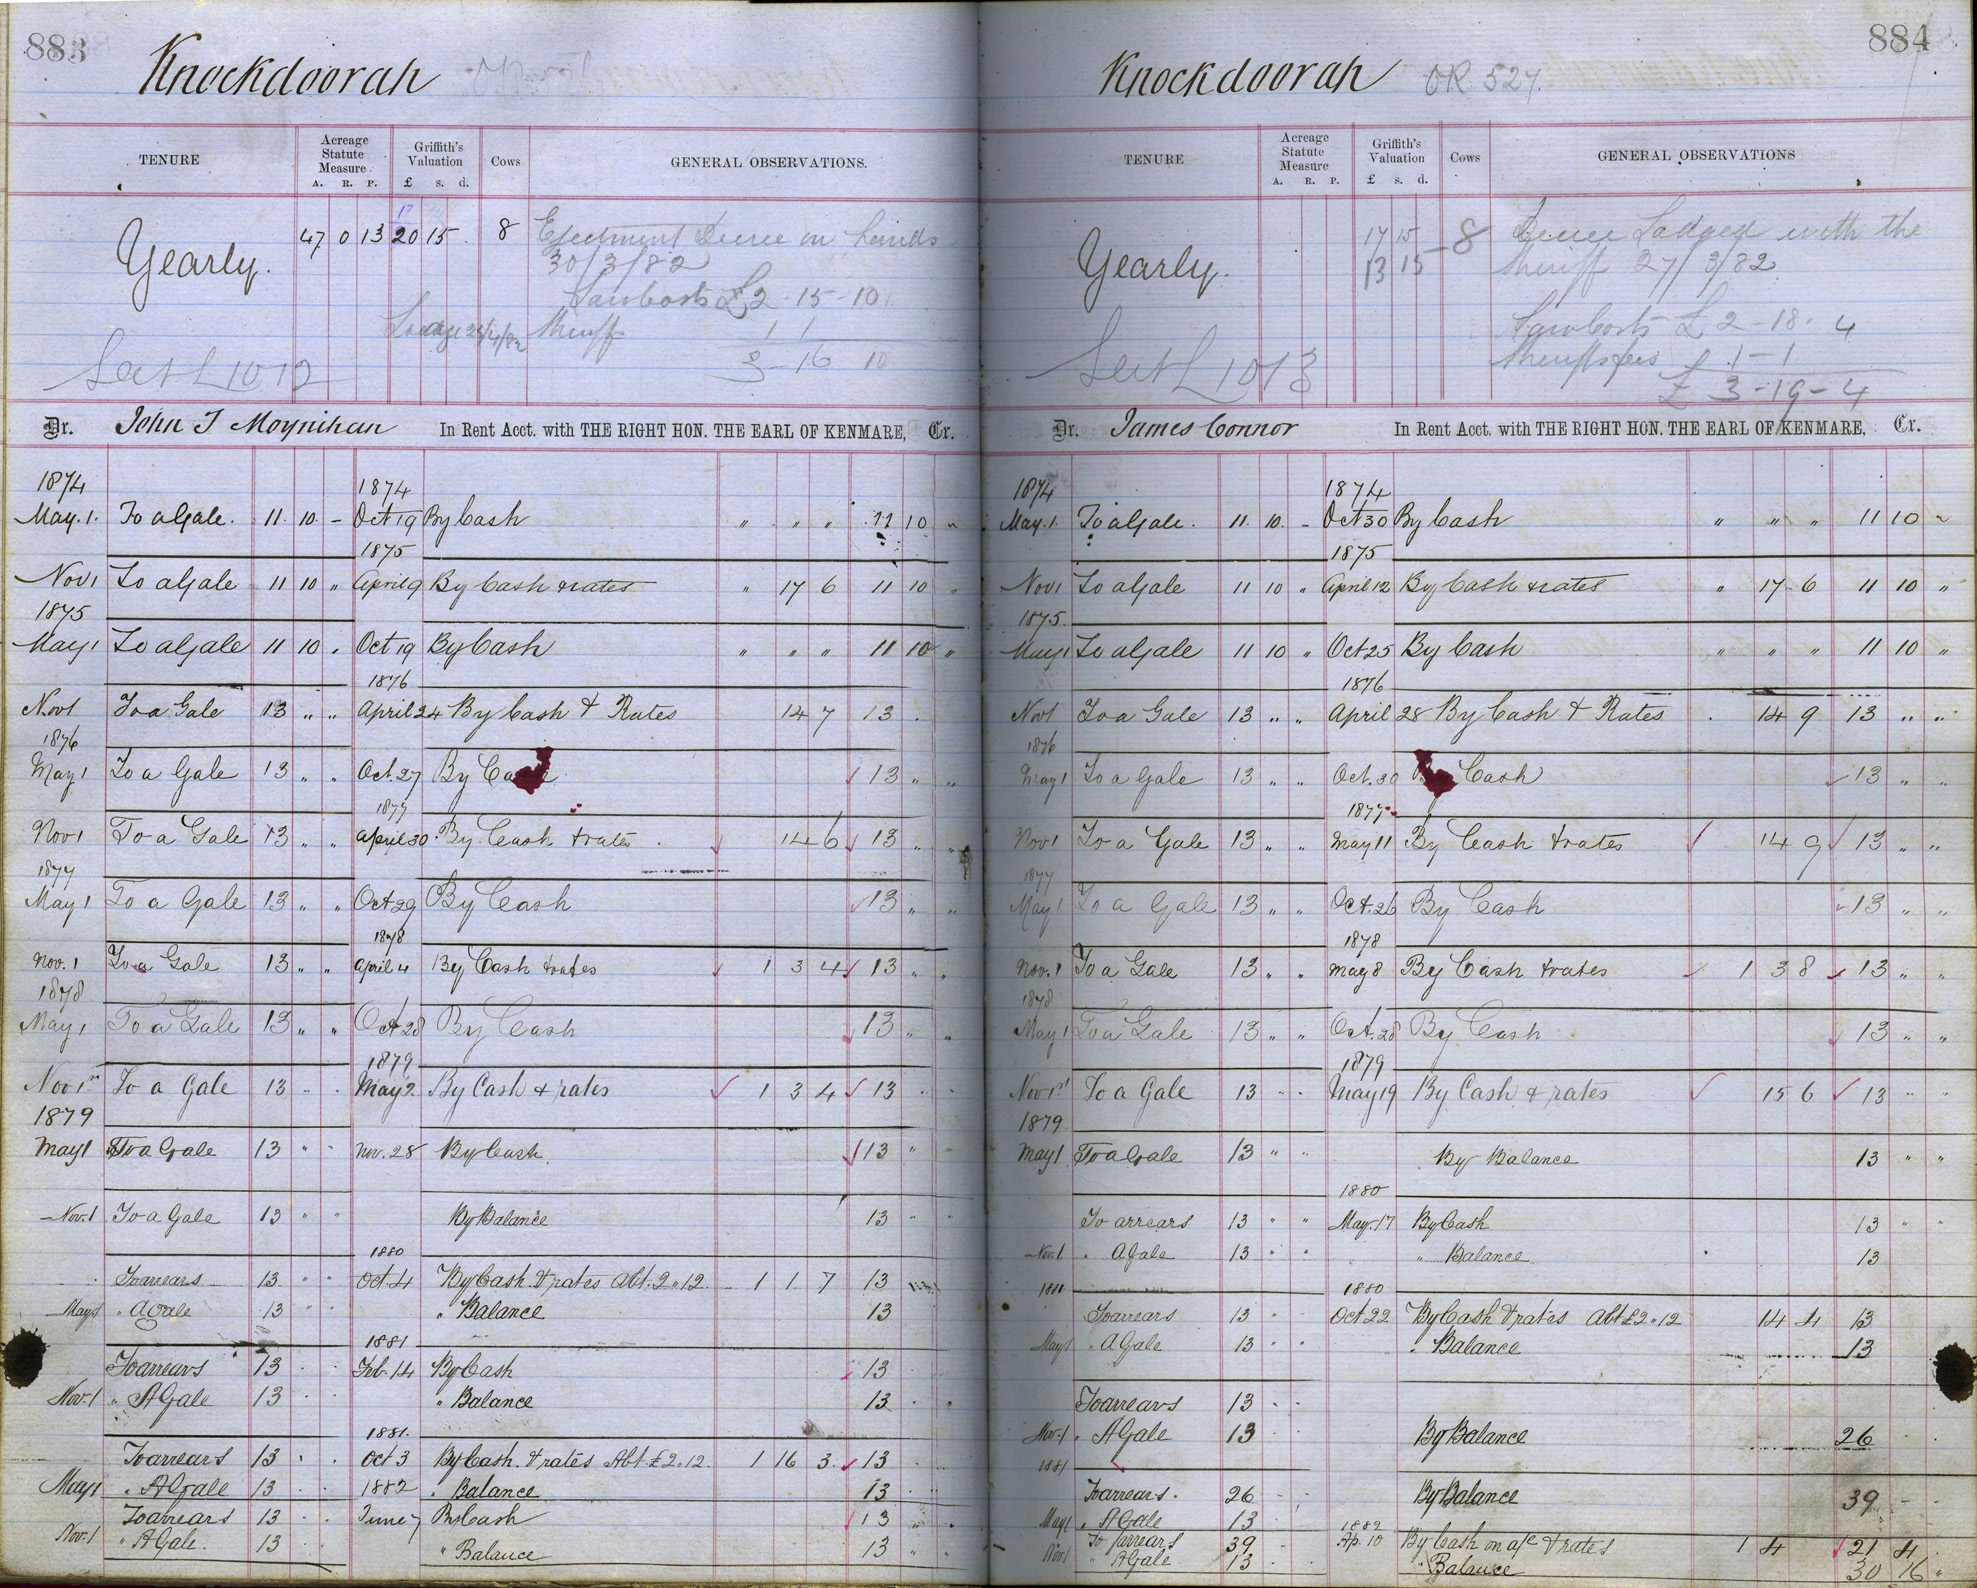 883
Knockdoorah
TENURE
Acreage Statute Measure
A. R. P.
Griffith's Valuation
£ s. d.
Cows
GENERAL OBSERVATIONS.
17
Yearly. 47 0 13 20 15 8 Ejectment Decree on Lands
30/3/82
Law Costs £2-15-10
Sheriff 1 1
3-16 10
1012
Dr. John T Moynihan In Rent Acct. with THE RIGHT HON. THE EARL OF KENMARE, Cr.
1874 1874
May. 1. To a Gale. 11. 10. - Oct 19 By Cash " " " 11 10 "
1875
Nov 1 To a Gale 11 10 " April 9 By Cash & rates " 17 6 11 10 "
1875
May 1 To a Gale 11 10 . Oct 19 By Cash " " " 11 10 "
1876
Nov 1 To a Gale 13 " " April 24 By Cash & Rates 14 7 13 .
1876
May 1 To a Gale 13 " " Oct. 27 By Cash 13 " "
1877
Nov 1 To a Gale 13 " " April 30 By Cash & rates 14 6 13 " "
1877
May 1 To a Gale 13 " " Oct 29 By Cash 13 " "
1878
Nov. 1 To a Gale 13 " " April 4 By Cash & rates 1 3 4 13 " "
1878
May 1 To a Gale 13 " " Oct 28 By Cash 13 " "
1879
Nov 1st To a Gale 13 " " May 2 By Cash & rates 1 3 4 13 " "
1879
May 1 To a Gale 13 " " Nov. 28 By Cash 13 " "
Nov. 1 To a Gale 13 " " By Balance 13 " "
1880
To arrears 13 " " Oct. 4 By Cash & rates Abt. 2 " 12 1 1 7 13
May 1 " A Gale 13 " " " Balance 13
1881
To arrears 13 " " Feb. 14 By Cash 13
Nov. 1 " A Gale 13 " " " Balance 13 " "
1881.
To arrears 13 " " Oct 3 By Cash. & rates Abt £2.12. 1 16 3 13
May 1 " A Gale 13 " " 1882 " Balance 13
To arrears 13 " " June 7 By Cash 13 " "
Nov. 1 " A Gale. 13 " " " Balance 13 " "
884
Knockdoorah OR 527.
TENURE
Acreage Statute Measure
A. R. P.
Griffith's Valuation
£ s. d.
Cows
GENERAL OBSERVATIONS
Yearly. 17 15 - 8 Decree Lodged with the
13 15 Sheriff 27/3/82
Law Costs £2-18-4
Sheriffs fees £ 1-1
£ 3-19-4
1013
Dr. James Connor In Rent Acct. with THE RIGHT HON. THE EARL OF KENMARE, Cr.
1874 1874
May. 1. To a Gale. 11. 10. - Oct 30 By Cash " " " 11 10 "
1875
Nov 1 To a Gale 11 10 " April 12 By Cash & rates " 17-6 11 10 "
1875.
May 1 To a Gale 11 10 " Oct 25 By Cash " " " 11 10 "
1876
Nov 1 To a Gale 13 " " April 28 By Cash & Rates . 14 9 13 " "
1876
May 1 To a Gale 13 " " Oct. 30 By Cash 13 " "
1877
Nov 1 To a Gale 13 " " May 11 By Cash & rates 14 9 13 " "
1877
May 1 To a Gale 13 " " Oct. 26 By Cash 13 " "
1878
Nov. 1 To a Gale 13 " " May 8 By Cash & rates 1 3 8 13 " "
1878
May 1 To a Gale 13 " " Oct. 28 By Cash 13 " "
1879
Nov 1st To a Gale 13 " " May 19 By Cash & rates 15 6 13 " "
1879
May 1 To a Gale 13 " " By Balance 13 " "
1880
To arrears 13 " " May. 17 By Cash 13 " "
Nov. 1 " A Gale 13 " " " Balance 13
1880 1880
To arrears 13 " " Oct 22 By Cash & rates Abt £2.12 14 4 13
May 1 " A Gale 13 " " " Balance 13
To arrears 13 " "
Nov. 1 " A Gale 13 By Balance 26
1881
To arrears. 26 By Balance 39 - -
May 1 " A Gale 13
1882
To arrears 39 Ap. 10 By Cash on a/c & rates 1 4 21 4
Nov 1 " A Gale 13 " Balance 30 16 "